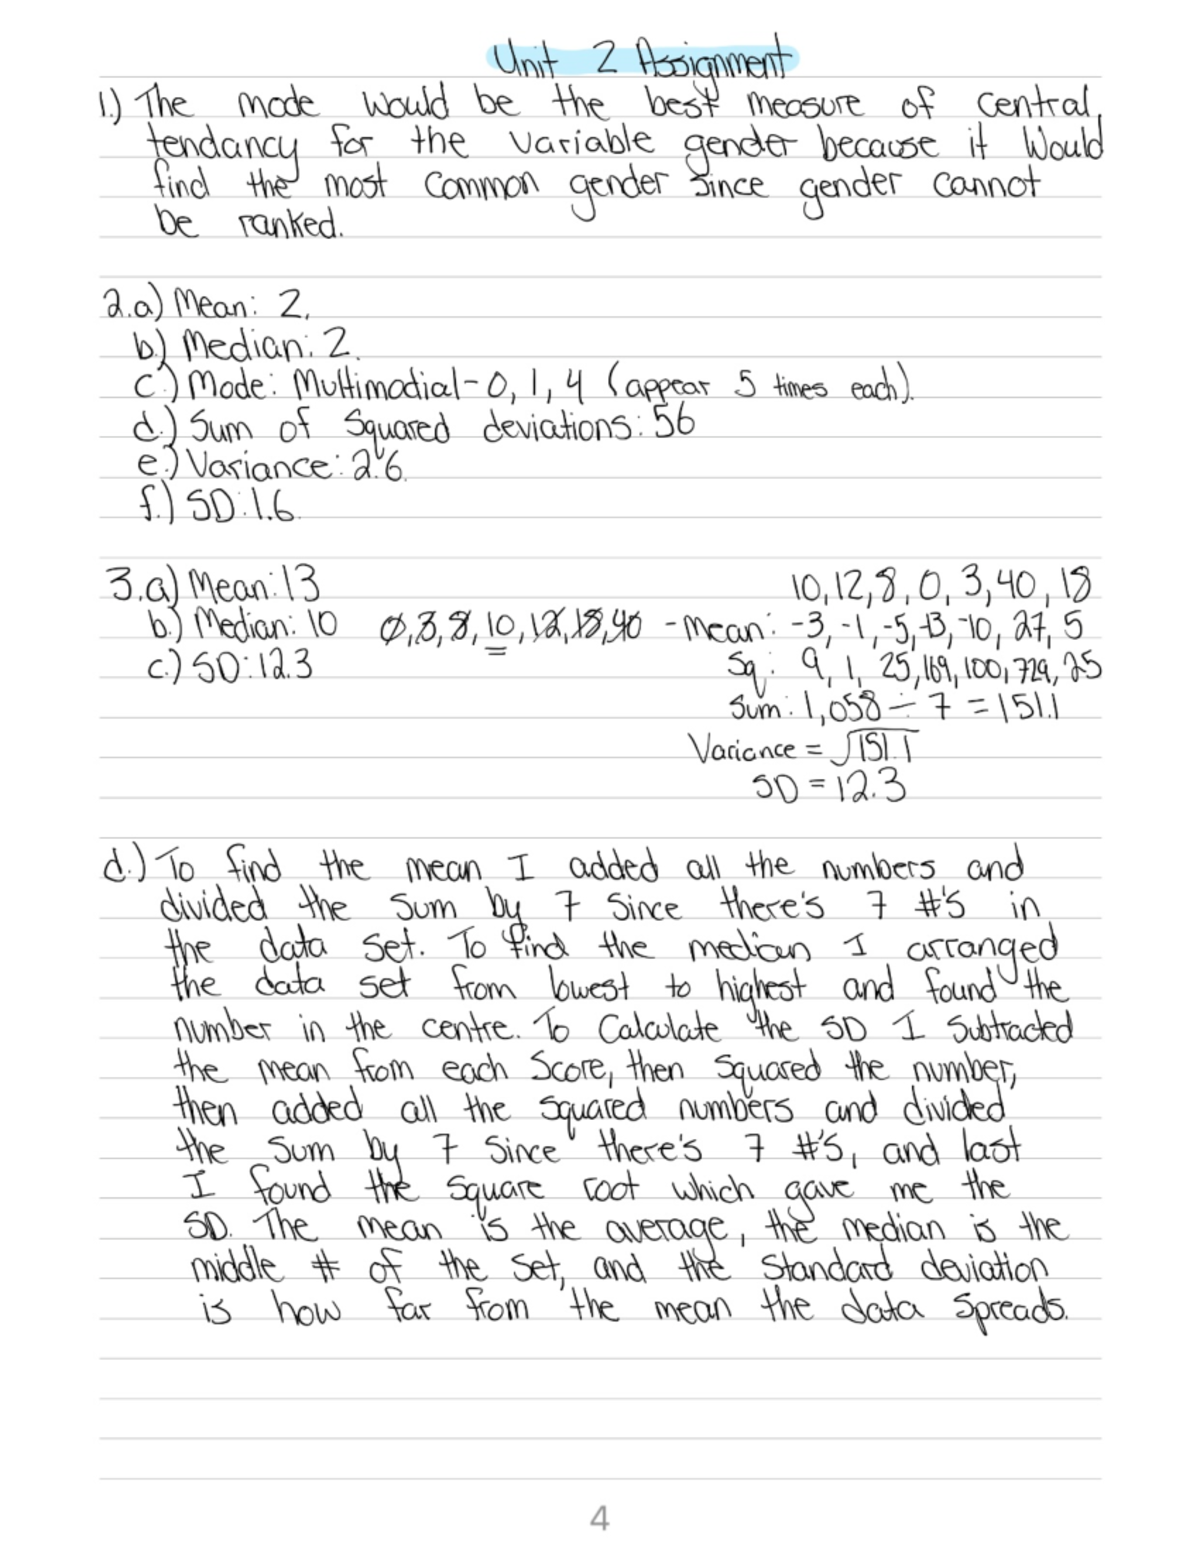 Unit 2 Assignment
1.) The mode would be the best measure of central
tendancy for the variable gender because it would
find the most common gender since gender cannot
be ranked.
2.a) Mean: 2.
b.) Median: 2.
c.) Mode: Multimodial - 0, 1, 4 (appear 5 times each).
d.) Sum of Squared deviations: 56
e.) Variance: 2.6.
f.) SD: 1.6.
3.a) Mean: 13 10, 12, 8, 0, 3, 40, 18
b.) Median: 10 0, 3, 8, 10, 12, 18, 40 - Mean: -3, -1, -5, -13, -10, 27, 5
c.) SD: 12.3 Sq: 9, 1, 25, 169, 100, 729, 25
Sum: 1,058 ÷ 7 = 151.1
Variance = √151.1
SD = 12.3
d.) To find the mean I added all the numbers and
divided the sum by 7 since there's 7 #'s in
the data set. To find the median I arranged
the data set from lowest to highest and found the
number in the centre. To Calculate the SD I subtracted
the mean from each score, then squared the number,
then added all the squared numbers and divided
the sum by 7 since there's 7 #'s, and last
I found the square root which gave me the
SD. The mean is the average, the median is the
middle # of the set, and the standard deviation
is how far from the mean the data spreads.
4